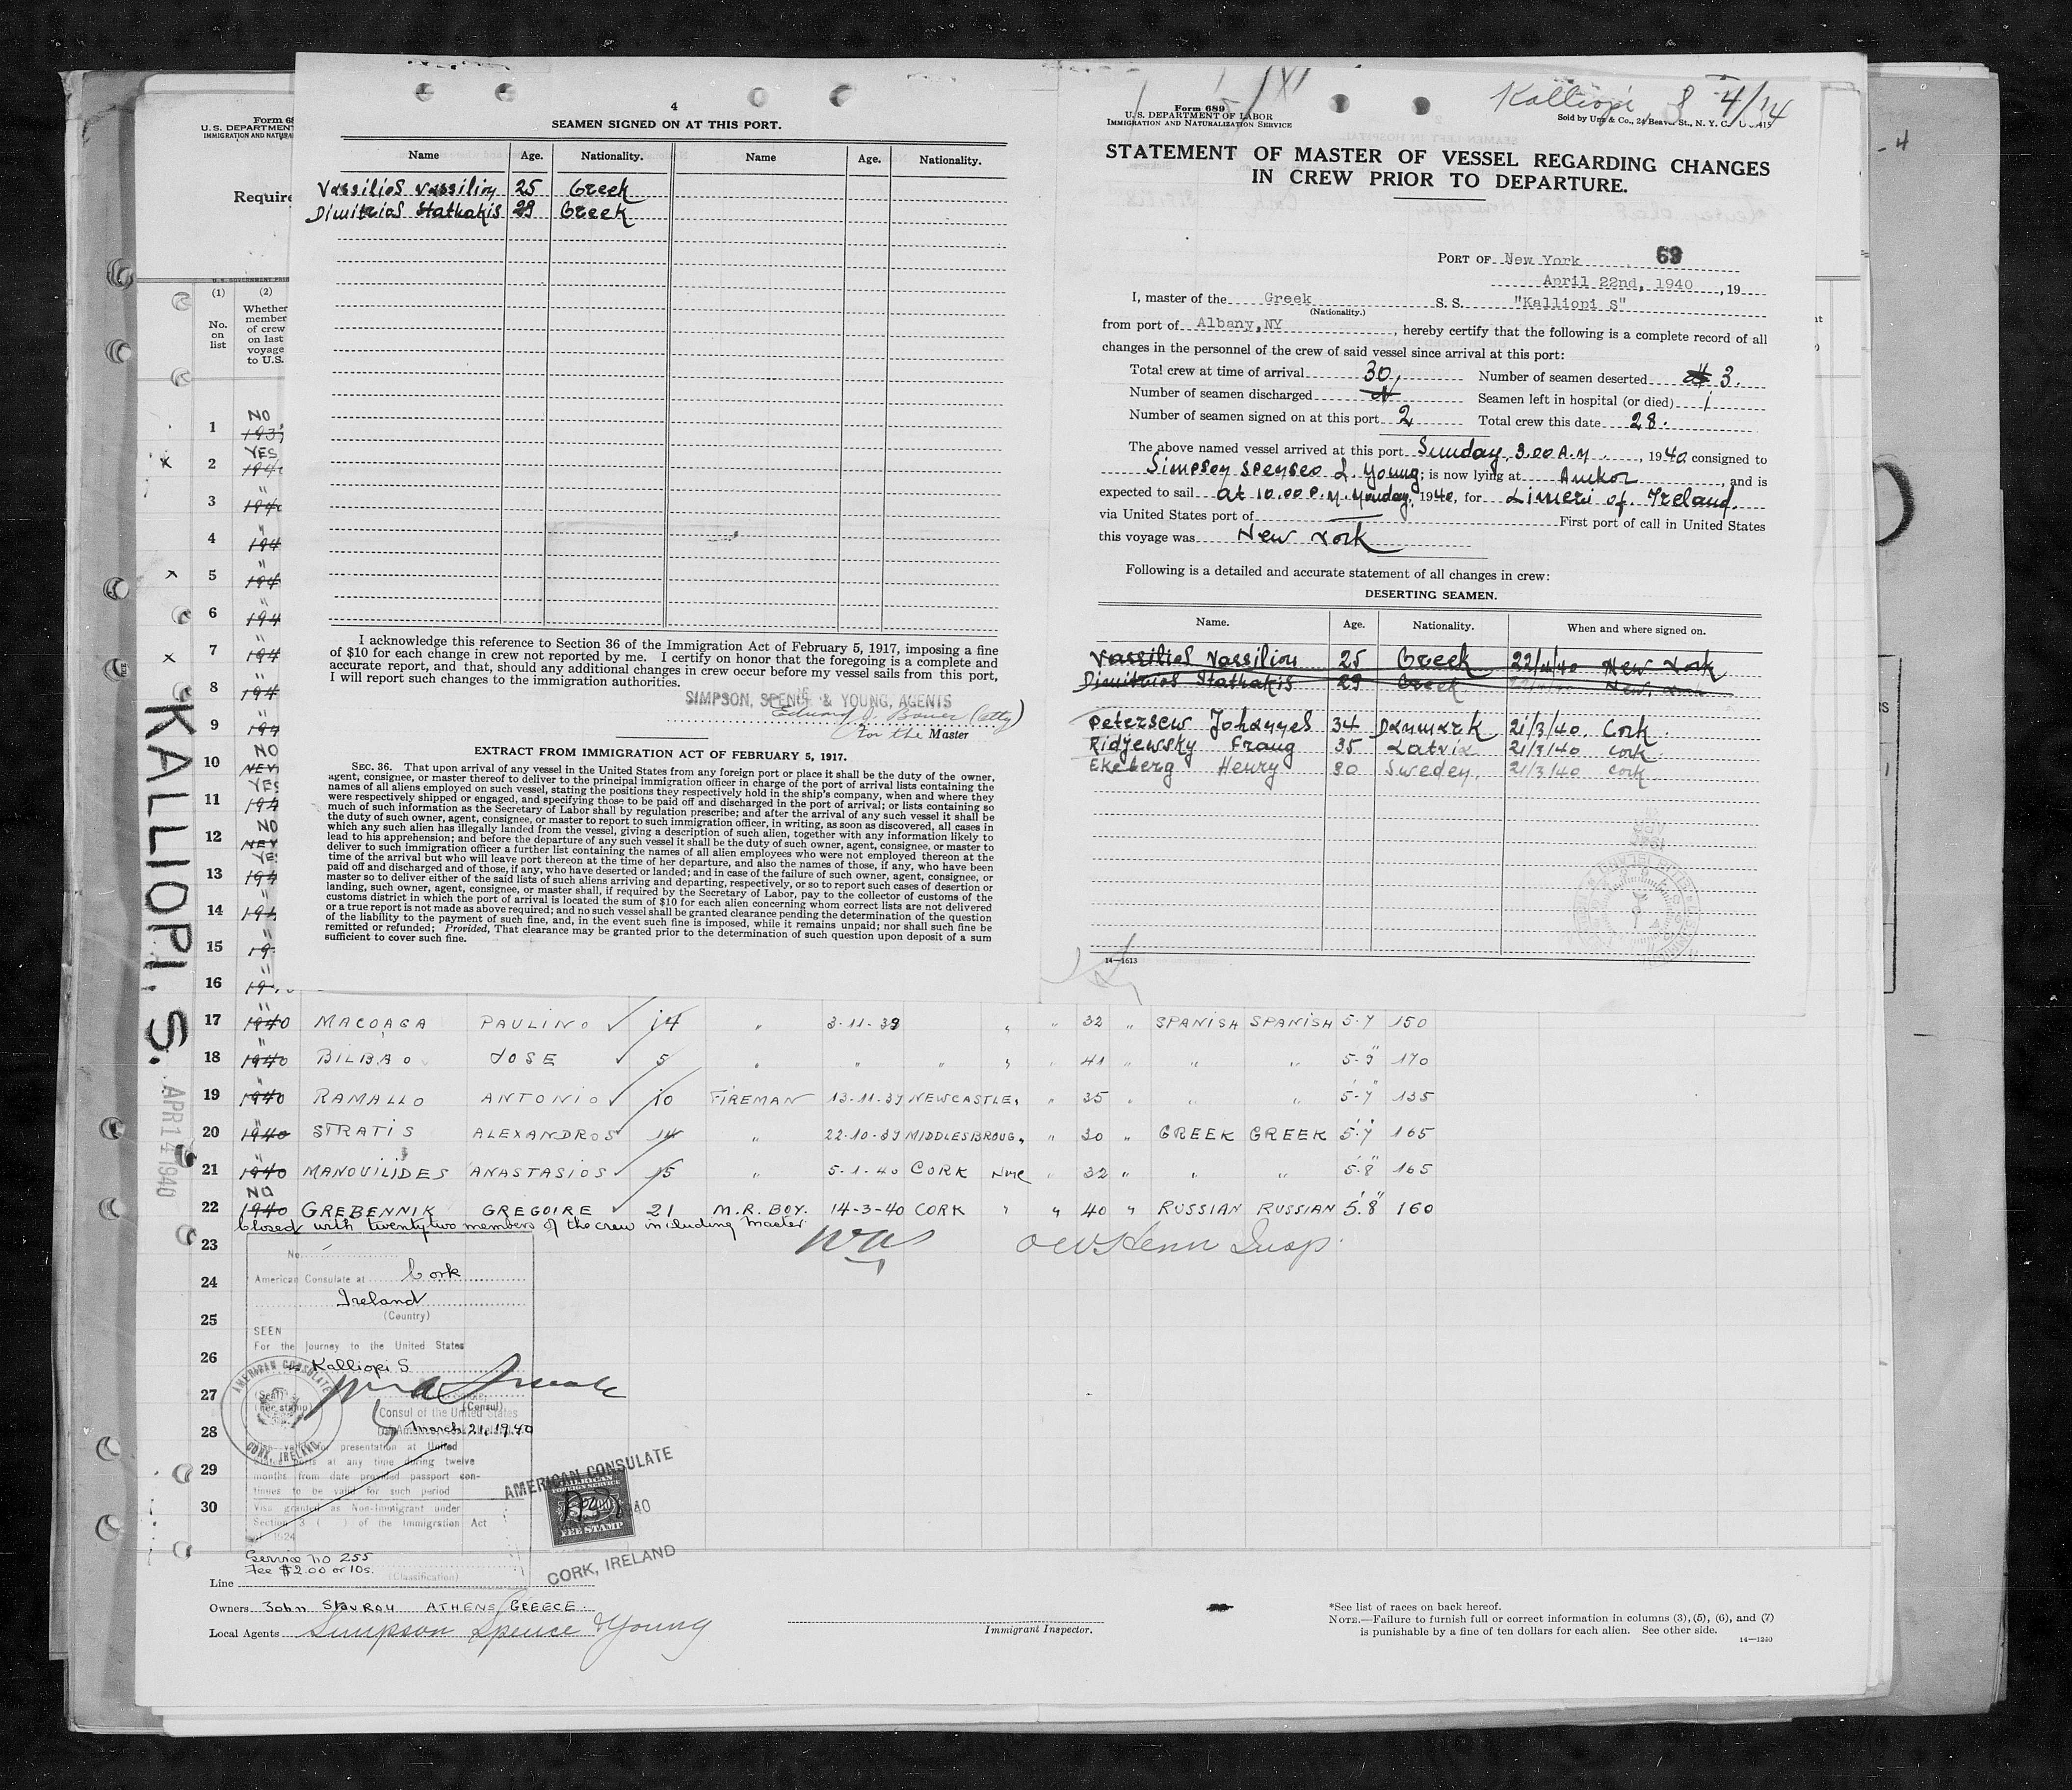 4
SEAMEN SIGNED ON AT THIS PORT.
Name Age. Nationality. Name Age. Nationality.
Vassilios Vassiliou 25 Greek
Dimitrios Stathakis 29 Greek
I acknowledge this reference to Section 36 of the Immigration Act of February 5, 1917, imposing a fine
of $10 for each change in crew not reported by me. I certify on honor that the foregoing is a complete and
accurate report, and that, should any additional changes in crew occur before my vessel sails from this port,
I will report such changes to the immigration authorities.
SIMPSON, SPENCE & YOUNG, AGENTS
Edward J. Bauer (atty)
for the Master
EXTRACT FROM IMMIGRATION ACT OF FEBRUARY 5, 1917.
SEC. 36. That upon arrival of any vessel in the United States from any foreign port or place it shall be the duty of the owner,
agent, consignee, or master thereof to deliver to the principal immigration officer in charge of the port of arrival lists containing the
names of all aliens employed on such vessel, stating the positions they respectively hold in the ship's company, when and where they
were respectively shipped or engaged, and specifying those to be paid off and discharged in the port of arrival; or lists containing so
much of such information as the Secretary of Labor shall by regulation prescribe; and after the arrival of any such vessel it shall be
the duty of such owner, agent, consignee, or master to report to such immigration officer, in writing, as soon as discovered, all cases in
which any such alien has illegally landed from the vessel, giving a description of such alien, together with any information likely to
lead to his apprehension; and before the departure of any such vessel it shall be the duty of such owner, agent, consignee, or master to
deliver to such immigration officer a further list containing the names of all alien employees who were not employed thereon at the
time of the arrival but who will leave port thereon at the time of her departure, and also the names of those, if any, who have been
paid off and discharged and of those, if any, who have deserted or landed; and in case of the failure of such owner, agent, consignee, or
master so to deliver either of the said lists of such aliens arriving and departing, respectively, or so to report such cases of desertion or
landing, such owner, agent, consignee, or master shall, if required by the Secretary of Labor, pay to the collector of customs of the
customs district in which the port of arrival is located the sum of $10 for each alien concerning whom correct lists are not delivered
or a true report is not made as above required; and no such vessel shall be granted clearance pending the determination of the question
of the liability to the payment of such fine, and, in the event such fine is imposed, while it remains unpaid; nor shall such fine be
remitted or refunded; Provided, That clearance may be granted prior to the determination of such question upon deposit of a sum
sufficient to cover such fine.
Kalliopi S 4/14
Form 689
U. S. DEPARTMENT OF LABOR
IMMIGRATION AND NATURALIZATION SERVICE
Sold by Unz & Co., 24 Beaver St., N. Y. C.
STATEMENT OF MASTER OF VESSEL REGARDING CHANGES
IN CREW PRIOR TO DEPARTURE.
63
PORT OF New York
April 22nd, 1940, 19
I, master of the Greek S. S. "Kalliopi S"
(Nationality.)
from port of Albany, NY, hereby certify that the following is a complete record of all
changes in the personnel of the crew of said vessel since arrival at this port:
Total crew at time of arrival 30, Number of seamen deserted 3.
Number of seamen discharged Seamen left in hospital (or died) 1
Number of seamen signed on at this port 2 Total crew this date 28.
The above named vessel arrived at this port Sunday, 3.00 A.M., 1940 consigned to
Simpson Spensed & Young; is now lying at Ankor, and is
expected to sail at 10.00 P.M. Monday, 1940, for Limeri of Ireland.
via United States port of First port of call in United States
this voyage was New York
Following is a detailed and accurate statement of all changes in crew:
DESERTING SEAMEN.
Name. Age. Nationality. When and where signed on.
Vassilios Vassiliou 25 Greek 22/4/40 New York
Dimitrios Stathakis 29 Greek New York
Petersew Johannes 34 Danmark 21/3/40. Cork
Ridjewsky Frang 35 Latvia 21/3/40 Cork
Ekeberg Henry 30 Sweden. 21/3/40 Cork
14—1613
Form 68
U. S. DEPARTMENT
IMMIGRATION AND NATURA
Require
(1) (2)
No. on list
Whether member of crew on last voyage to U.S.
1 NO
2 YES
3 "
4 "
5 "
6 "
7 "
8 "
9 "
10 NO
11 YES
12 NO
13 YES
14 "
15 "
16 "
17 " 1940 MACOAGA PAULINO 14 " 3-11-39 " " 32 " SPANISH SPANISH 5-7 150
18 " 1940 BILBAO JOSE 5 " " " " " 41 " " " 5-9" 170
19 " 1940 RAMALLO ANTONIO 10 FIREMAN 13-11-39 NEWCASTLE, " 35 " " " 5-7" 135
20 " 1940 STRATIS ALEXANDROS 14 " 22-10-39 MIDDLESBROUG, " 30 " GREEK GREEK 5'7" 165
21 " 1940 MANOUILIDES ANASTASIOS 15 " 5-1-40 CORK " 32 " " " 5'8" 165
22 NO 1940 GREBENNIK GREGOIRE 21 M.R. BOY. 14-3-40 CORK " " 40 " RUSSIAN RUSSIAN 5'8" 160
Closed with twentytwo members of the crew including Master
23
24
25
26
27
28
29
30
KALLIOPI. S.
APR 14 1940
No.
American Consulate at Cork
Ireland
(Country)
SEEN
For the journey to the United States
Kalliopi S
AMERICAN CONSULATE
CORK, IRELAND
(Seal)
(Fee stamp)
(Consul)
Consul of the United States
March 21, 1940
valid for presentation at United
ports at any time during twelve
months from date provided passport con-
tinues to be valid for such period
Visa granted as Non-immigrant under
Section 3 ( ) of the Immigration Act
of 1924
Service no 255
Fee $2.00 or 10s.
(Classification)
AMERICAN CONSULATE
FOREIGN SERVICE
FEE STAMP
1940
CORK, IRELAND
Line
Owners John Stavrou ATHENS, GREECE.
Local Agents Simpson Spence & Young
Immigrant Inspector.
*See list of races on back hereof.
NOTE.—Failure to furnish full or correct information in columns (3), (5), (6), and (7)
is punishable by a fine of ten dollars for each alien. See other side.
14—1240